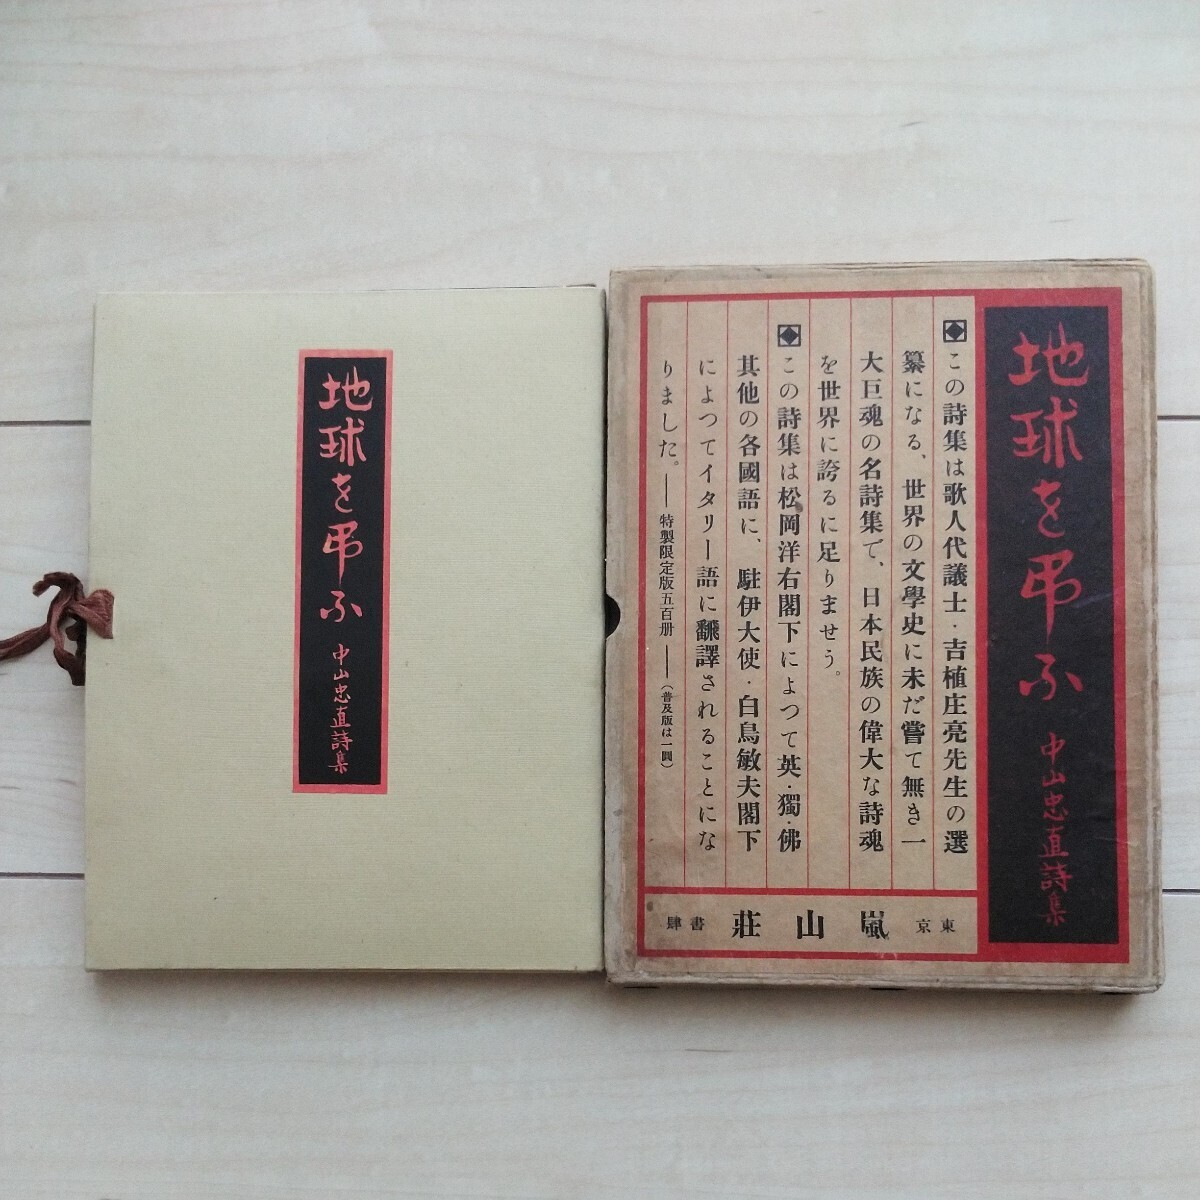 地球を弔ふ
中山忠直詩集
地球を弔ふ
中山忠直詩集
この詩集は歌人代議士・吉植庄亮先生の選
纂になる、世界の文學史に未だ嘗て無き一
大巨魂の名詩集で、日本民族の偉大な詩魂
を世界に誇るに足りませう。
この詩集は松岡洋右閣下によつて英・獨・佛
其他の各國語に、駐伊大使・白鳥敏夫閣下
によつてイタリー語に飜譯されることにな
りました。――特製限定版五百册――(普及版は一圓)
東京 嵐山莊 書肆